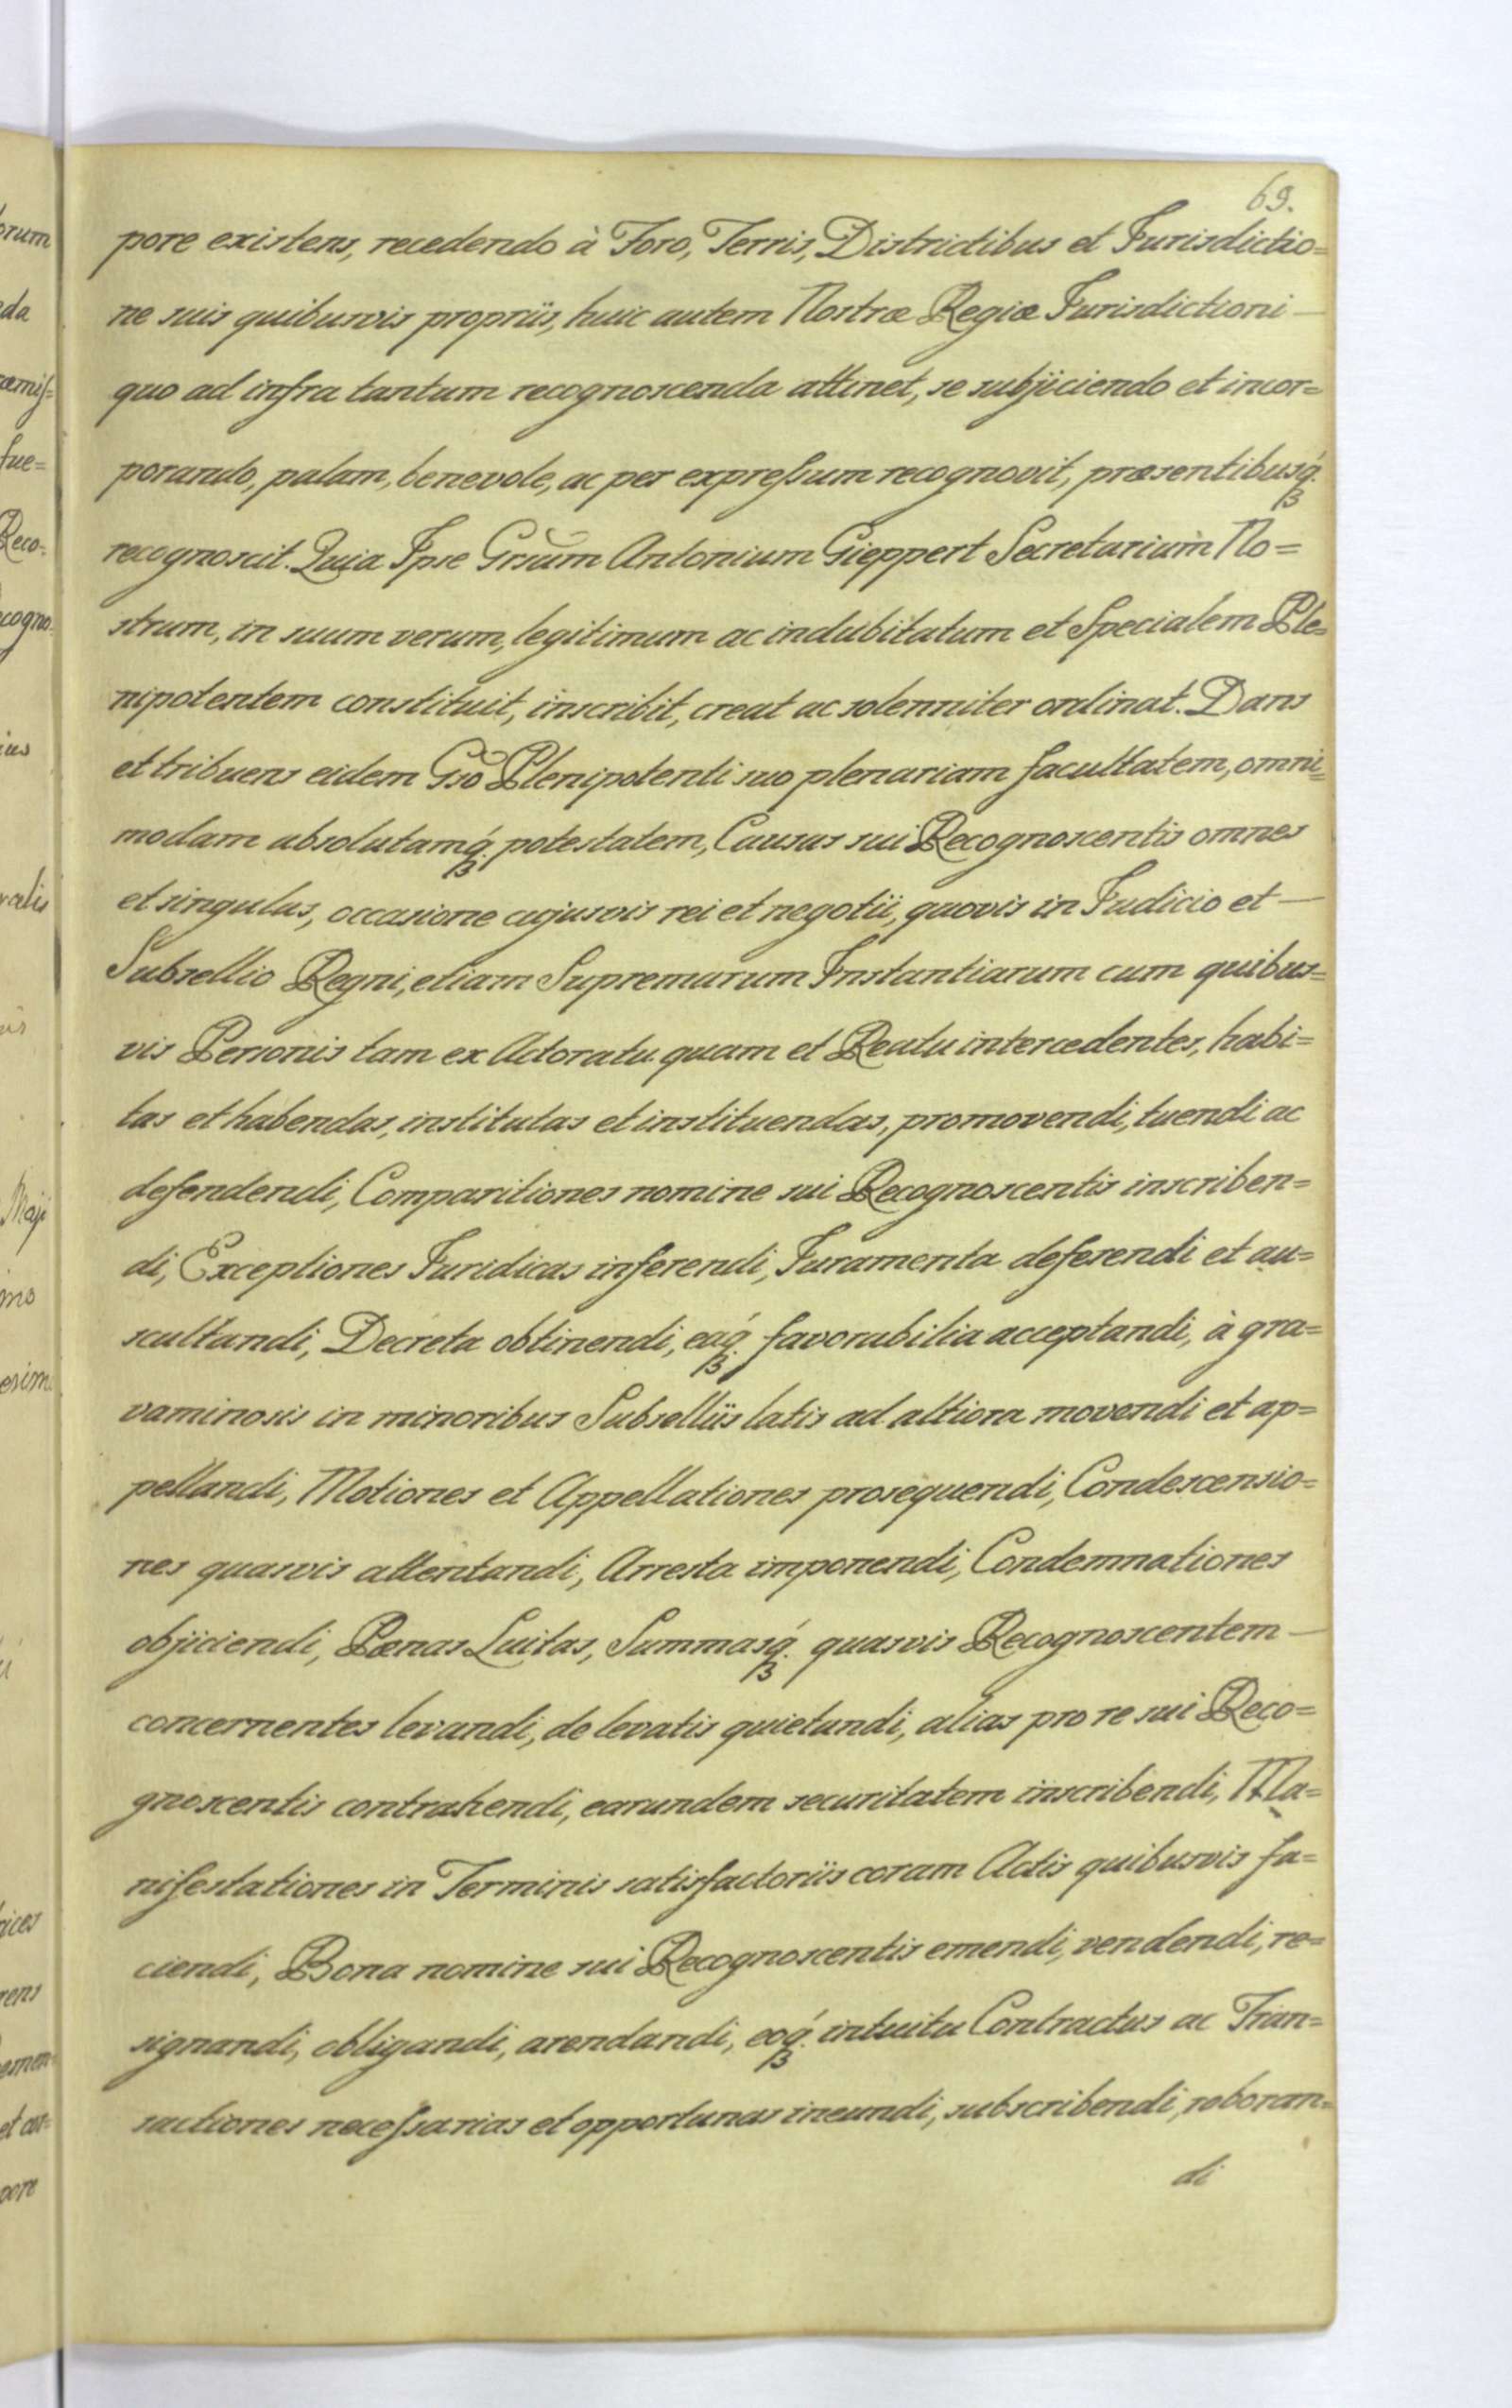 69.
pore existens, recedendo à Foro, Terris, Districtibus et Jurisdictio=
ne suis quibusvis propriis, huic autem Nostræ Regiæ Jurisdictioni —
quo ad infra tantum recognoscenda attinet, se subjiciendo et incor=
porando, palam, benevole, ac per expressum recognovit, præsentibusq́.
recognoscit. Quia Ipse Grsum Antonium Gieppert Secretarium No=
strum, in suum verum, legitimum ac indubitatum et Specialem Ple=
nipotentem constituit, inscribit, creat ac solenniter ordinat. Dans
et tribuens eidem Gso Plenipotenti suo plenariam facultatem, omni=
modam absolutamq́. potestatem, Causas sui Recognoscentis omnes
et singulas, occasione cujusvis rei et negotii, quovis in Judicio et —
Subsellio Regni, etiam Supremarum Instantiarum cum quibus=
vis Personis tam ex Actoratu quam et Reatu intercedentes, habi=
tas et habendas, institutas et instituendas, promovendi, tuendi ac
defendendi, Comparitiones nomine sui Recognoscentis inscriben=
di, Exceptiones Juridicas inferendi, Juramenta deferendi et au=
scultandi, Decreta obtinendi, eaq́. favorabilia acceptandi, à gra=
vaminosis in minoribus Subselliis latis ad altiora movendi et ap=
pellandi, Motiones et Appellationes prosequendi, Condescensio=
nes quasvis attentandi, Arresta imponendi, Condemnationes
objiciendi, Pænas Luitas, Summasq́. quasvis Recognoscentem —
concernentes levandi, de levatis quietandi, alias pro re sui Reco=
gnoscentis contrahendi, earundem securitatem inscribendi, Ma=
nifestationes in Terminis satisfactoriis coram Actis quibusvis fa=
ciendi, Bona nomine sui Recognoscentis emendi, vendendi, re=
signandi, obligandi, arendandi, eoq́. intuitu Contractus ac Tran=
sactiones necessarias et opportunas ineundi, subscribendi, roboran=
di